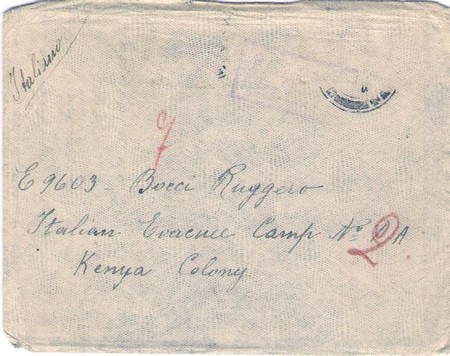 Italiano
7
E9603 - Bocci Ruggero
Italian Evacuee Camp No
2
A
Kenya Colony